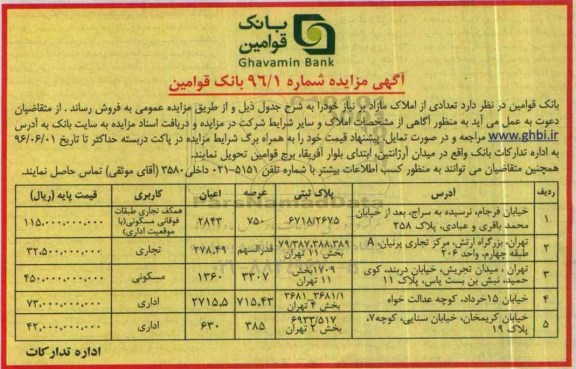 بانک
قوامین
Ghavamin Bank
آگهی مزایده شماره ۹۶/۱ بانک قوامین
بانک قوامین در نظر دارد تعدادی از املاک مازاد بر نیاز خودرا به شرح جدول ذیل و از طریق مزایده عمومی به فروش رساند . از متقاضیان
دعوت به عمل می آید به منظور آگاهی از مشخصات املاک و سایر شرایط شرکت در مزایده و دریافت اسناد مزایده به سایت بانک به آدرس
www.ghbi.ir مراجعه و در صورت تمایل، پیشنهاد قیمت خود را به همراه برگ شرایط مزایده در پاکت دربسته حداکثر تا تاریخ ۹۶/۰۶/۰۱
به اداره تدارکات بانک واقع در میدان آرژانتین، ابتدای بلوار آفریقا، برج قوامین تحویل نمایند.
همچنین متقاضیان می توانند به منظور کسب اطلاعات بیشتر با شماره تلفن ۵۱۵۱-۰۲۱ داخلی ۳۵۸۰ (آقای موثقی) تماس حاصل نمایند.
ردیف آدرس پلاک ثبتی عرصه اعیان کاربری قیمت پایه (ریال)
۱ خیابان فرجام، نرسیده به سراج، بعد از خیابان محمد باقری و عبادی، پلاک ۲۵۸ ۶۷۱۸/۲۶۷۵ ۷۵۰ ۲۸۴۳ همکف تجاری طبقات فوقانی مسکونی(با موقعیت اداری) ۱۱۵,۰۰۰,۰۰۰,۰۰۰
۲ تهران، بزرگراه ارتش، مرکز تجاری پرنیان، A طبقه چهارم، واحد ۲۰۶ ۷۹/۳۸۷,۳۸۸,۳۸۹ بخش ۱۱ تهران قدرالسهم ۲۷۸,۴۹ تجاری ۳۲,۵۰۰,۰۰۰,۰۰۰
۳ تهران ، میدان تجریش، خیابان دربند، کوی حمید، نبش بن بست یاس، پلاک ۱۱ ۱۷۰۹بخش ۱۱ تهران ۳۳۰۷ ۱۳۶۰ مسکونی ۴۵۰,۰۰۰,۰۰۰,۰۰۰
۴ خیابان ۱۵خرداد، کوچه عدالت خواه ۳۶۸۱_۳۶۸۱/۱ بخش ۴ تهران ۷۱۵,۴۳ ۲۷۱۵,۵ اداری ۷۳,۰۰۰,۰۰۰,۰۰۰
۵ خیابان کریمخان، خیابان سنایی، کوچه۷، پلاک ۱۹ ۶۹۳۳/۵۱۷ بخش ۲ تهران ۳۸۵ ۶۳۰ اداری ۴۲,۰۰۰,۰۰۰,۰۰۰
اداره تدارکات